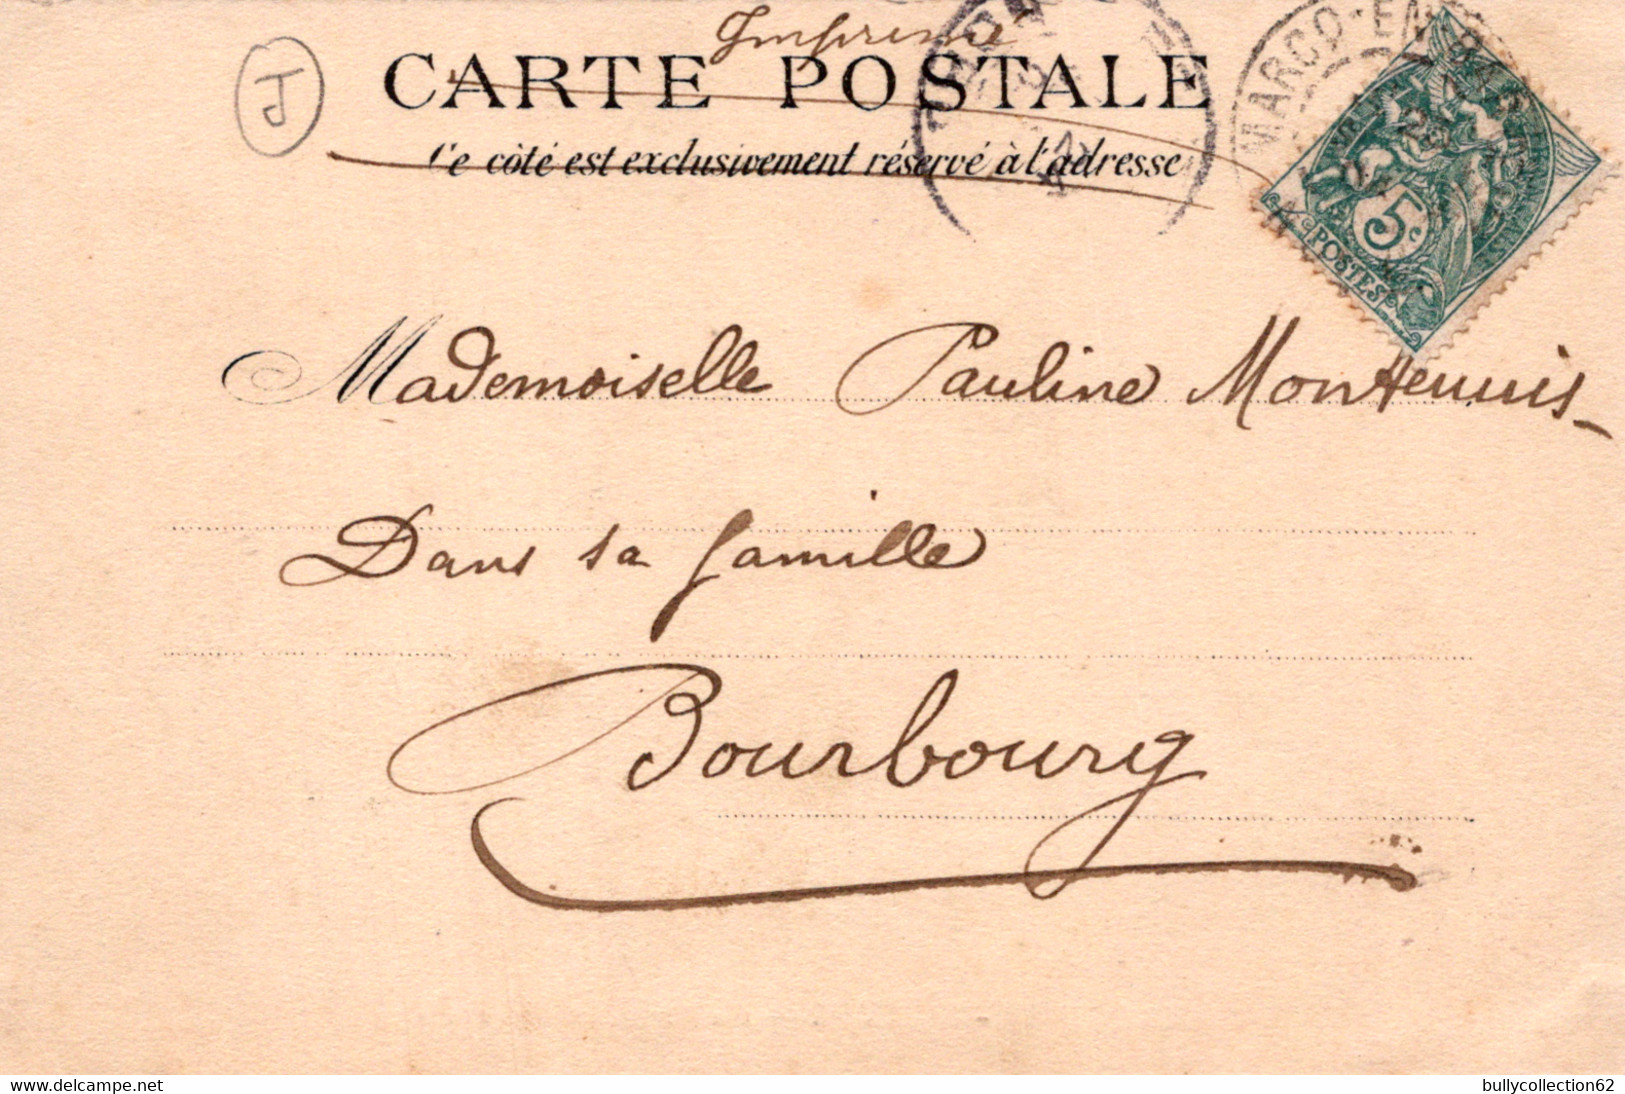 Imprimé
J
CARTE POSTALE
Ce côté est exclusivement réservé à l'adresse
MARCQ-EN-BAR
5c
POSTES
Mademoiselle Pauline Monteuuis
Dans sa famille
Bourbourg
www.delcampe.net
bullycollection62